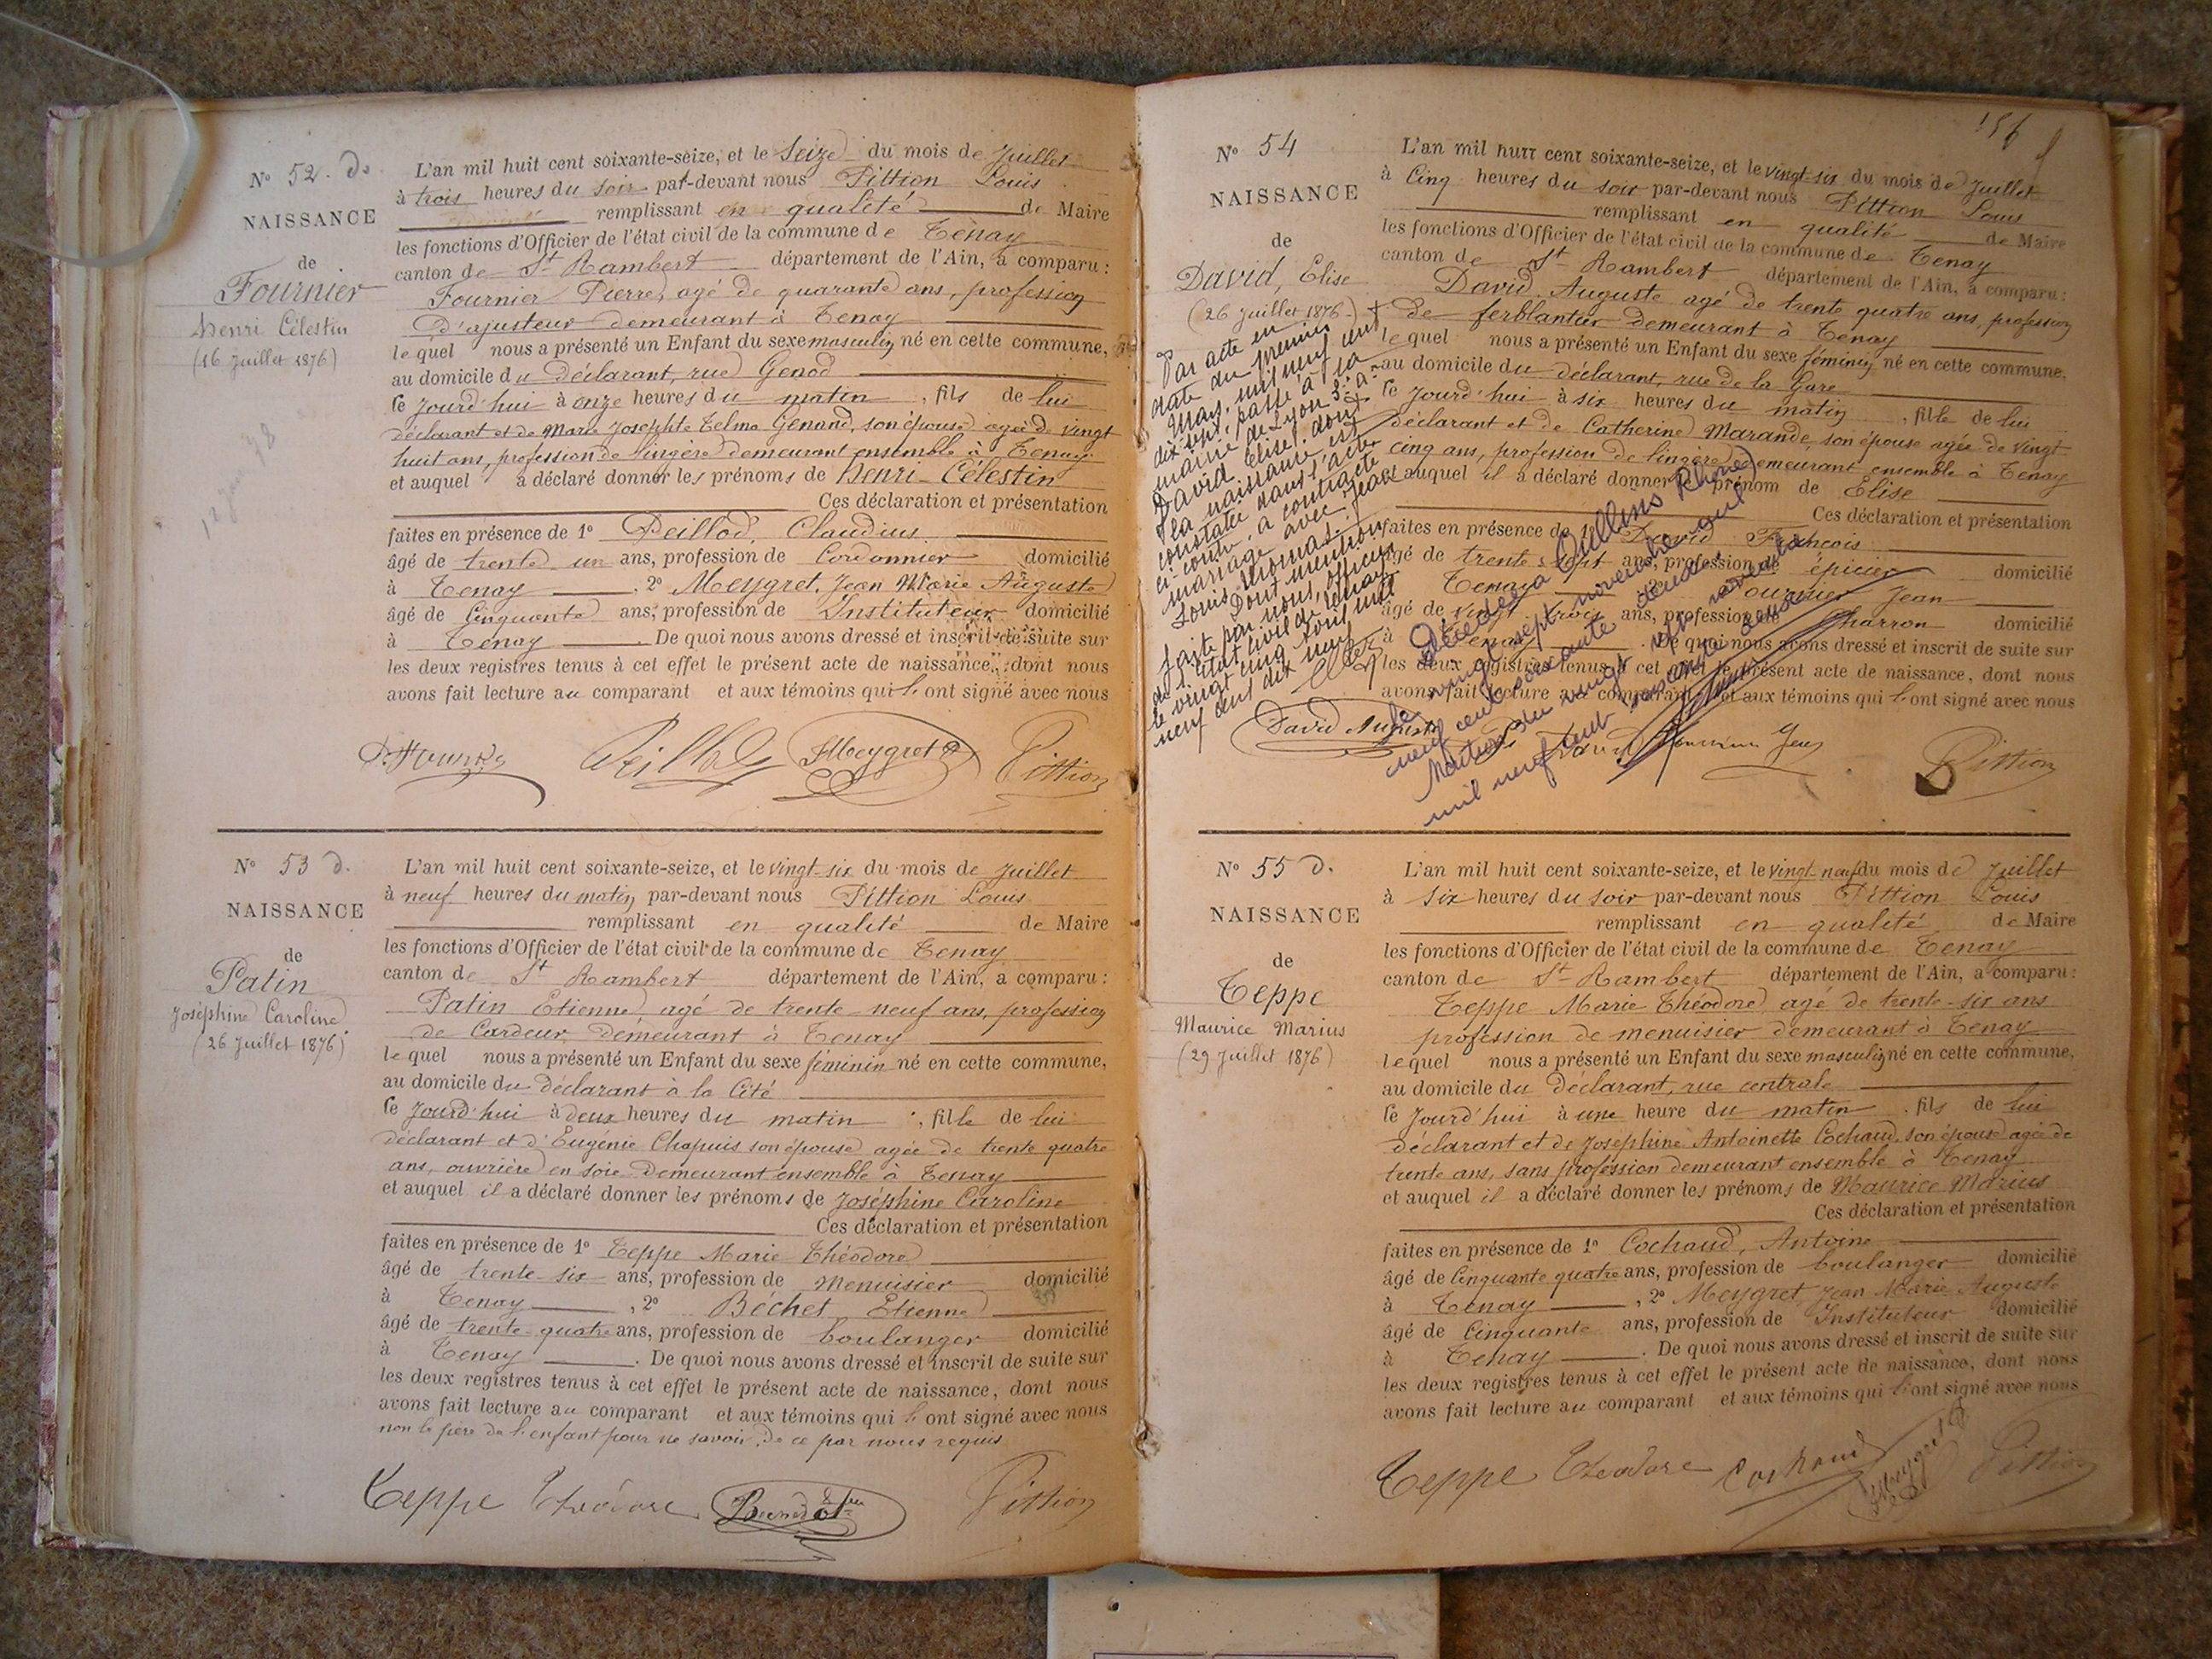 N° 52. d.
NAISSANCE
de
Fournier
Henri Célestin
(16 Juillet 1876)
L'an mil huit cent soixante-seize, et le Seize du mois de Juillet
à trois heures du soir par-devant nous Pittion Louis
remplissant en qualité de Maire
les fonctions d'Officier de l'état civil de la commune de Tenay
canton de St Rambert département de l'Ain, a comparu :
Fournier Pierre, agé de quarante ans, profession
d'ajusteur demeurant à Tenay
lequel nous a présenté un Enfant du sexe masculin né en cette commune,
au domicile du déclarant, rue Genod
le jourd'hui à onze heures du matin, fils de lui
déclarant et de Marie Josephte Telma Genand, son épouse agée de vingt
huit ans, profession de lingère demeurant ensemble à Tenay
et auquel a déclaré donner les prénoms de Henri-Célestin
Ces déclaration et présentation
faites en présence de 1° Peillod, Claudius
âgé de trente un ans, profession de Cordonnier domicilié
à Tenay, 2° Meygret, Jean Marie Auguste
âgé de Cinquante ans, profession de Instituteur domicilié
à Tenay. De quoi nous avons dressé et inscrit de suite sur
les deux registres tenus à cet effet le présent acte de naissance, dont nous
avons fait lecture au comparant et aux témoins qui l'ont signé avec nous
Meygret Pittion
N° 53 d.
NAISSANCE
de
Patin
Joséphine Caroline
(26 Juillet 1876)
L'an mil huit cent soixante-seize, et le vingt-six du mois de Juillet
à neuf heures du matin par-devant nous Pittion Louis
remplissant en qualité de Maire
les fonctions d'Officier de l'état civil de la commune de Tenay
canton de St Rambert département de l'Ain, a comparu :
Patin Etienne, agé de trente neuf ans, profession
de Cardeur, demeurant à Tenay
lequel nous a présenté un Enfant du sexe féminin né en cette commune,
au domicile du déclarant à la Cité
le jourd'hui à deux heures du matin, fille de lui
déclarant et d'Eugénie Chapuis son épouse agée de trente quatre
ans, ouvrière en soie demeurant ensemble à Tenay
et auquel il a déclaré donner les prénoms de Joséphine Caroline
Ces déclaration et présentation
faites en présence de 1° Teppe Marie Théodore
âgé de trente-six ans, profession de Menuisier domicilié
à Tenay, 2° Béchet Etienne
âgé de trente-quatre ans, profession de boulanger domicilié
à Tenay. De quoi nous avons dressé et inscrit de suite sur
les deux registres tenus à cet effet le présent acte de naissance, dont nous
avons fait lecture au comparant et aux témoins qui l'ont signé avec nous
non le père de l'enfant pour ne savoir. De ce par nous requis
Teppe Théodore Pittion
N° 54
NAISSANCE
de
David, Elise
(26 Juillet 1876)
Par acte en
date du premier
May, mil neuf cent
dix sept, passé à la
mairie de Lyon 3e a.
David Elise, dont
la naissance est
constatée dans l'acte
ci-contre, a contracté
mariage avec Jean
Louis Thomas.
Dont mention
faite par nous, officier
de l'état civil de Tenay
le vingt cinq Août mil
neuf cent dix neuf
156
L'an mil huit cent soixante-seize, et le vingt-six du mois de Juillet
à Cinq heures du soir par-devant nous Pittion Louis
remplissant en qualité de Maire
les fonctions d'Officier de l'état civil de la commune de Tenay
canton de St Rambert département de l'Ain, a comparu :
David Auguste agé de trente quatre ans, profession
de ferblantier demeurant à Tenay
lequel nous a présenté un Enfant du sexe féminin né en cette commune,
au domicile du déclarant, rue de la Gare
le jourd'hui à six heures du matin, fille de lui
déclarant et de Catherine Marande, son épouse agée de vingt
cinq ans, profession de lingère demeurant ensemble à Tenay
et auquel il a déclaré donner le prénom de Elise
Ces déclaration et présentation
faites en présence de David François
âgé de trente sept ans, profession de épicier domicilié
Tenay Fournier Jean
âgé de vingt trois ans, profession de Charron domicilié
à Tenay. De quoi nous avons dressé et inscrit de suite sur
les deux registres tenus à cet effet le présent acte de naissance, dont nous
avons fait lecture au comparant et aux témoins qui l'ont signé avec nous
Décédée à Oullins (Rhône)
le vingt sept novembre mil
neuf cent soixante deux
Mention du vingt
mil neuf cent soixante deux
David Auguste Pittion
N° 55 d.
NAISSANCE
de
Teppe
Maurice Marius
(29 Juillet 1876)
L'an mil huit cent soixante-seize, et le vingt-neuf du mois de Juillet
à six heures du soir par-devant nous Pittion Louis
remplissant en qualité de Maire
les fonctions d'Officier de l'état civil de la commune de Tenay
canton de St Rambert département de l'Ain, a comparu :
Teppe Marie Théodore agé de trente-six ans
profession de menuisier demeurant à Tenay
lequel nous a présenté un Enfant du sexe masculin né en cette commune,
au domicile du déclarant, rue centrale
le jourd'hui à une heure du matin, fils de lui
déclarant et de Joséphine Antoinette Cochaud, son épouse agée de
trente ans, sans profession demeurant ensemble à Tenay
et auquel il a déclaré donner les prénoms de Maurice Marius
Ces déclaration et présentation
faites en présence de 1° Cochaud, Antoine
âgé de Cinquante quatre ans, profession de boulanger domicilié
à Tenay, 2° Meygret Jean Marie Auguste
âgé de Cinquante ans, profession de Instituteur domicilié
à Tenay. De quoi nous avons dressé et inscrit de suite sur
les deux registres tenus à cet effet le présent acte de naissance, dont nous
avons fait lecture au comparant et aux témoins qui l'ont signé avec nous
Teppe Théodore Cochaud Meygret Pittion